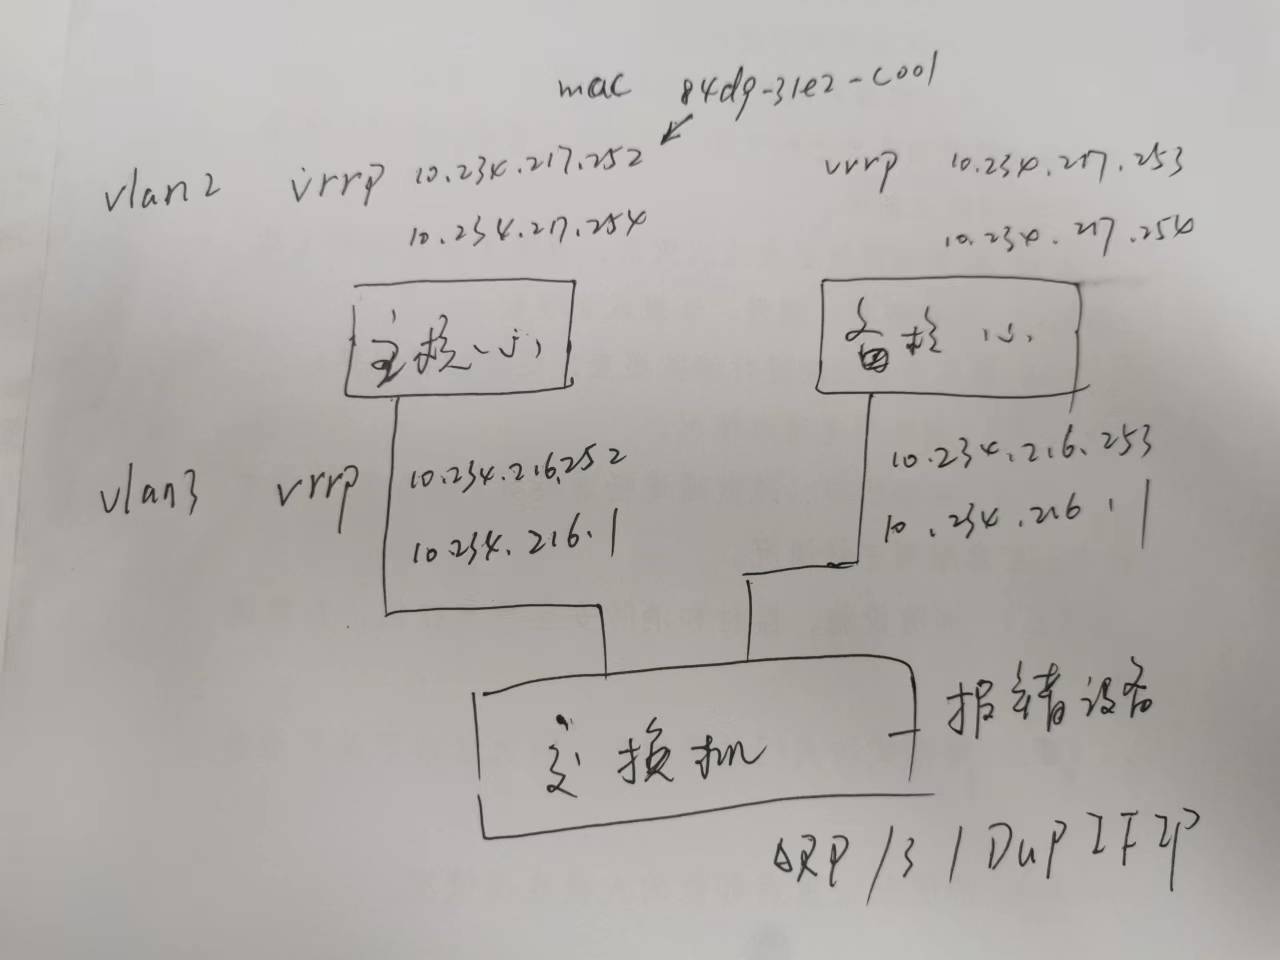 mac 84d9-31e2-c001
vlan2 vrrp 10.234.217.252
10.234.217.254
vrrp 10.234.217.253
10.234.217.254
主核心
备核心
vlan3 vrrp 10.234.216.252
10.234.216.1
10.234.216.253
10.234.216.1
交换机
报错设备
ARP/3/DUPIFIP